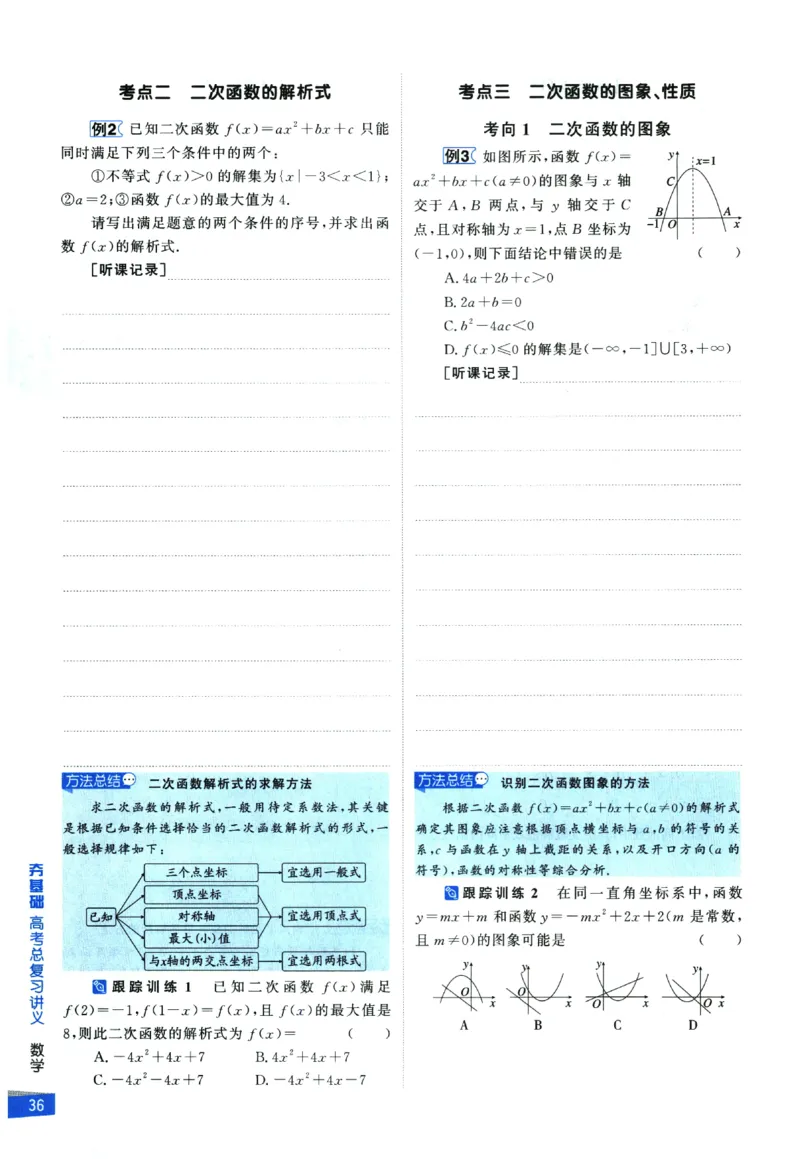 考点二　二次函数的解析式
例2 已知二次函数 f(x)=ax²+bx+c 只能
同时满足下列三个条件中的两个:
①不等式 f(x)>0 的解集为{x|-3<x<1};
②a=2;③函数 f(x)的最大值为 4.
请写出满足题意的两个条件的序号,并求出函
数 f(x)的解析式.
[听课记录]
方法总结 二次函数解析式的求解方法
求二次函数的解析式,一般用待定系数法,其关键
是根据已知条件选择恰当的二次函数解析式的形式,一
般选择规律如下:
三个点坐标 宜选用一般式
顶点坐标
已知 对称轴 宜选用顶点式
最大(小)值
与x轴的两交点坐标 宜选用两根式
跟踪训练 1　已知二次函数 f(x)满足
f(2)=-1,f(1-x)=f(x),且 f(x)的最大值是
8,则此二次函数的解析式为 f(x)= (　　)
A.-4x²+4x+7　B.4x²+4x+7
C.-4x²-4x+7　D.-4x²+4x-7
考点三　二次函数的图象、性质
考向 1　二次函数的图象
例3 如图所示,函数 f(x)=
ax²+bx+c(a≠0)的图象与 x 轴
交于 A,B 两点,与 y 轴交于 C
点,且对称轴为 x=1,点 B 坐标为
(-1,0),则下面结论中错误的是 (　　)
y x=1
C
B A
-1 O x
A.4a+2b+c>0
B.2a+b=0
C.b²-4ac<0
D.f(x)≤0 的解集是(-∞,-1]∪[3,+∞)
[听课记录]
方法总结 识别二次函数图象的方法
根据二次函数 f(x)=ax²+bx+c(a≠0)的解析式
确定其图象应注意根据顶点横坐标与 a,b 的符号的关
系,c 与函数在 y 轴上截距的关系,以及开口方向(a 的
符号),函数的对称性等综合分析.
跟踪训练 2　在同一直角坐标系中,函数
y=mx+m 和函数 y=-mx²+2x+2(m 是常数,
且 m≠0)的图象可能是 (　　)
y y y y
O x O x O x O x
A B C D
夯基础 高考总复习讲义 数学
36